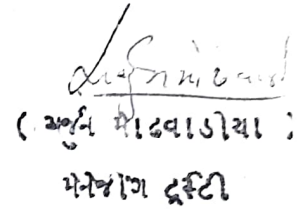 ( અર્જુન મોઢવાડીયા )
મેનેજીંગ ટ્રસ્ટી